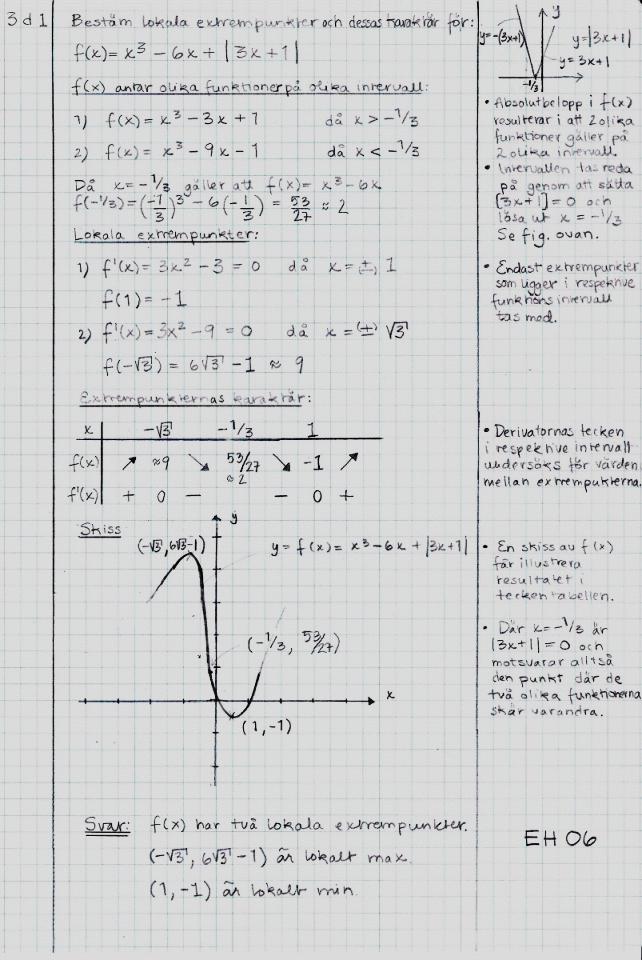 3d1
Bestäm lokala extrempunkter och dessas karaktär för:
f(x) = x³ - 6x + |3x+1|
f(x) antar olika funktioner på olika intervall:
1) f(x) = x³ - 3x + 1 då x > -1/3
2) f(x) = x³ - 9x - 1 då x < -1/3
Då x = -1/3 gäller att f(x) = x³ - 6x
f(-1/3) = (-1/3)³ - 6(-1/3) = 53/27 ≈ 2
Lokala extrempunkter:
1) f'(x) = 3x² - 3 = 0 då x = (±) 1
f(1) = -1
2) f'(x) = 3x² - 9 = 0 då x = (±) √3
f(-√3) = 6√3 - 1 ≈ 9
Extrempunkternas karaktär:
x -√3 -1/3 1
f(x) ↗ ≈9 ↘ 53/27 ≈2 ↘ -1 ↗
f'(x) + 0 - - 0 +
Skiss
y
(-√3, 6√3-1)
y = f(x) = x³ - 6x + |3x+1|
(-1/3, 53/27)
x
(1,-1)
Svar: f(x) har två lokala extrempunkter.
(-√3, 6√3-1) är lokalt max.
(1,-1) är lokalt min.
y
y=-(3x+1)
y=|3x+1|
y=3x+1
-1/3
• Absolutbelopp i f(x)
resulterar i att 2 olika
funktioner gäller på
2 olika intervall.
• Intervallen tas reda
på genom att sätta
|3x+1| = 0 och
lösa ut x = -1/3
Se fig. ovan.
• Endast extrempunkter
som ligger i respektive
funktions intervall
tas med.
• Derivatornas tecken
i respektive intervall
undersöks för värden
mellan extrempunkterna.
• En skiss av f(x)
får illustrera
resultatet i
teckentabellen.
• Där x = -1/3 är
|3x+1| = 0 och
motsvarar alltså
den punkt där de
två olika funktionerna
skär varandra.
EH 06